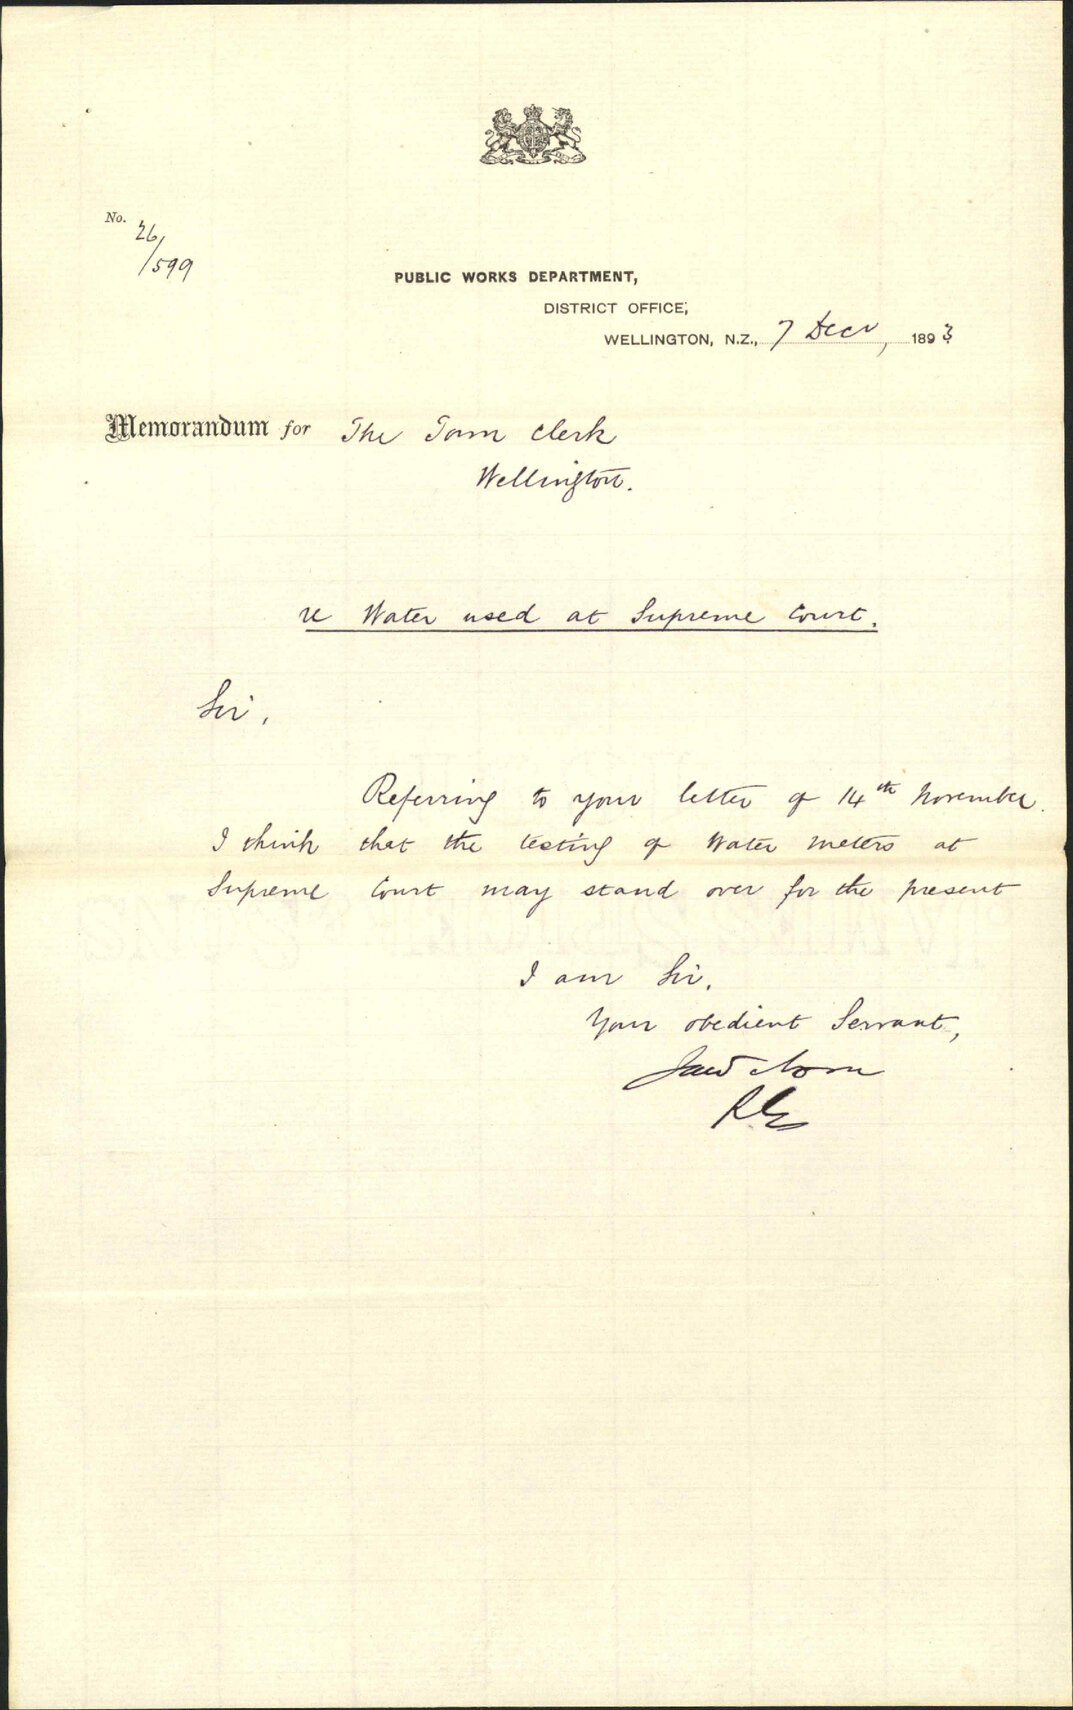 No. 26/599
PUBLIC WORKS DEPARTMENT,
DISTRICT OFFICE,
WELLINGTON, N.Z., 7 Decr, 1893
Memorandum for The Town Clerk
Wellington.
re Water used at Supreme Court.
Sir,
Referring to your letter of 14th November
I think that the testing of Water meters at
Supreme Court may stand over for the present
I am Sir,
Your obedient Servant,